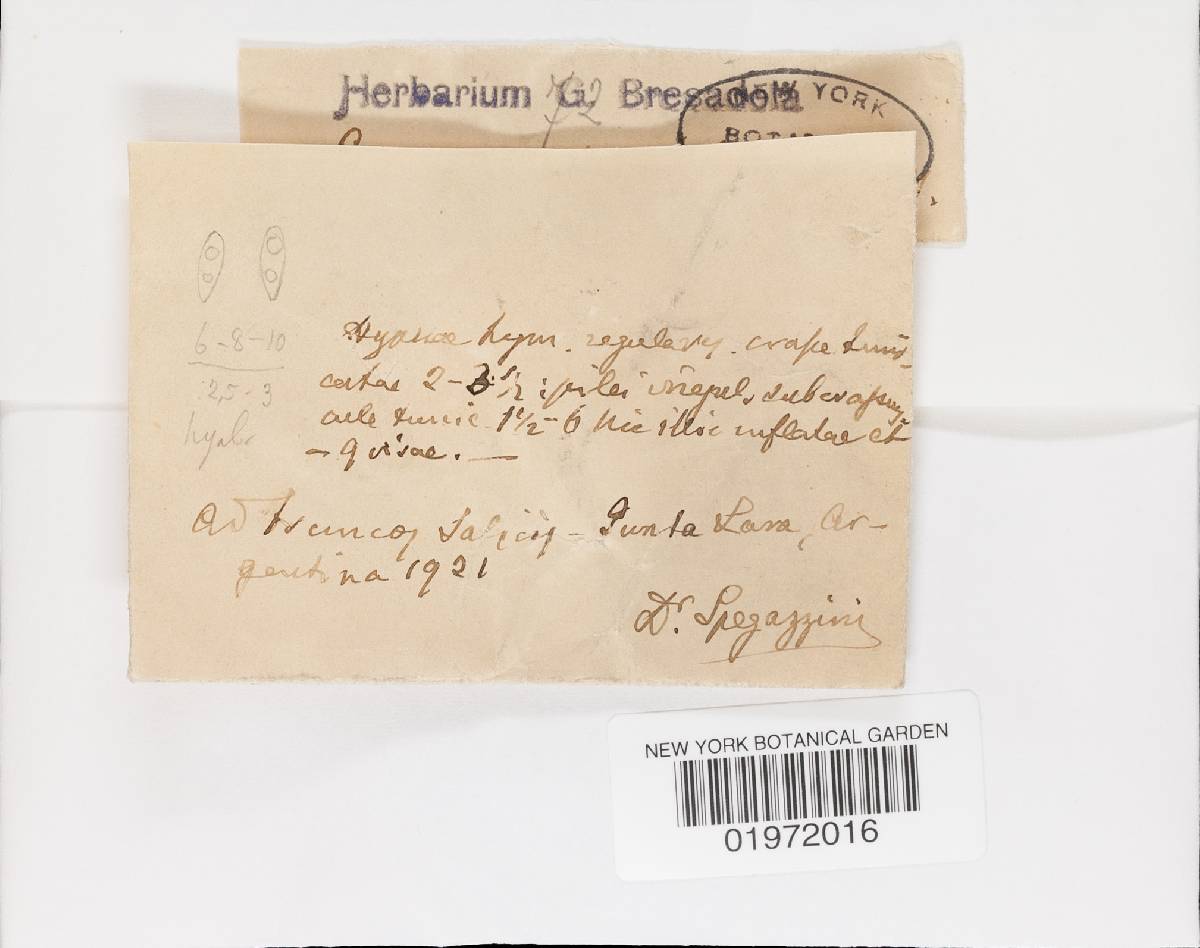 Herbarium G. Bresadola
NEW YORK
BOTA
6-8-10
2,5-3
hyal.
Hyphae hym. regulares. crasse tuni-
catae 2-3½; pilei irregul. subcrassi
tunic. 1½-6 hic illic inflatae et
Ad truncos Salicis - Punta Lara, Ar-
gentina 1921
Dr. Spegazzini
NEW YORK BOTANICAL GARDEN
01972016